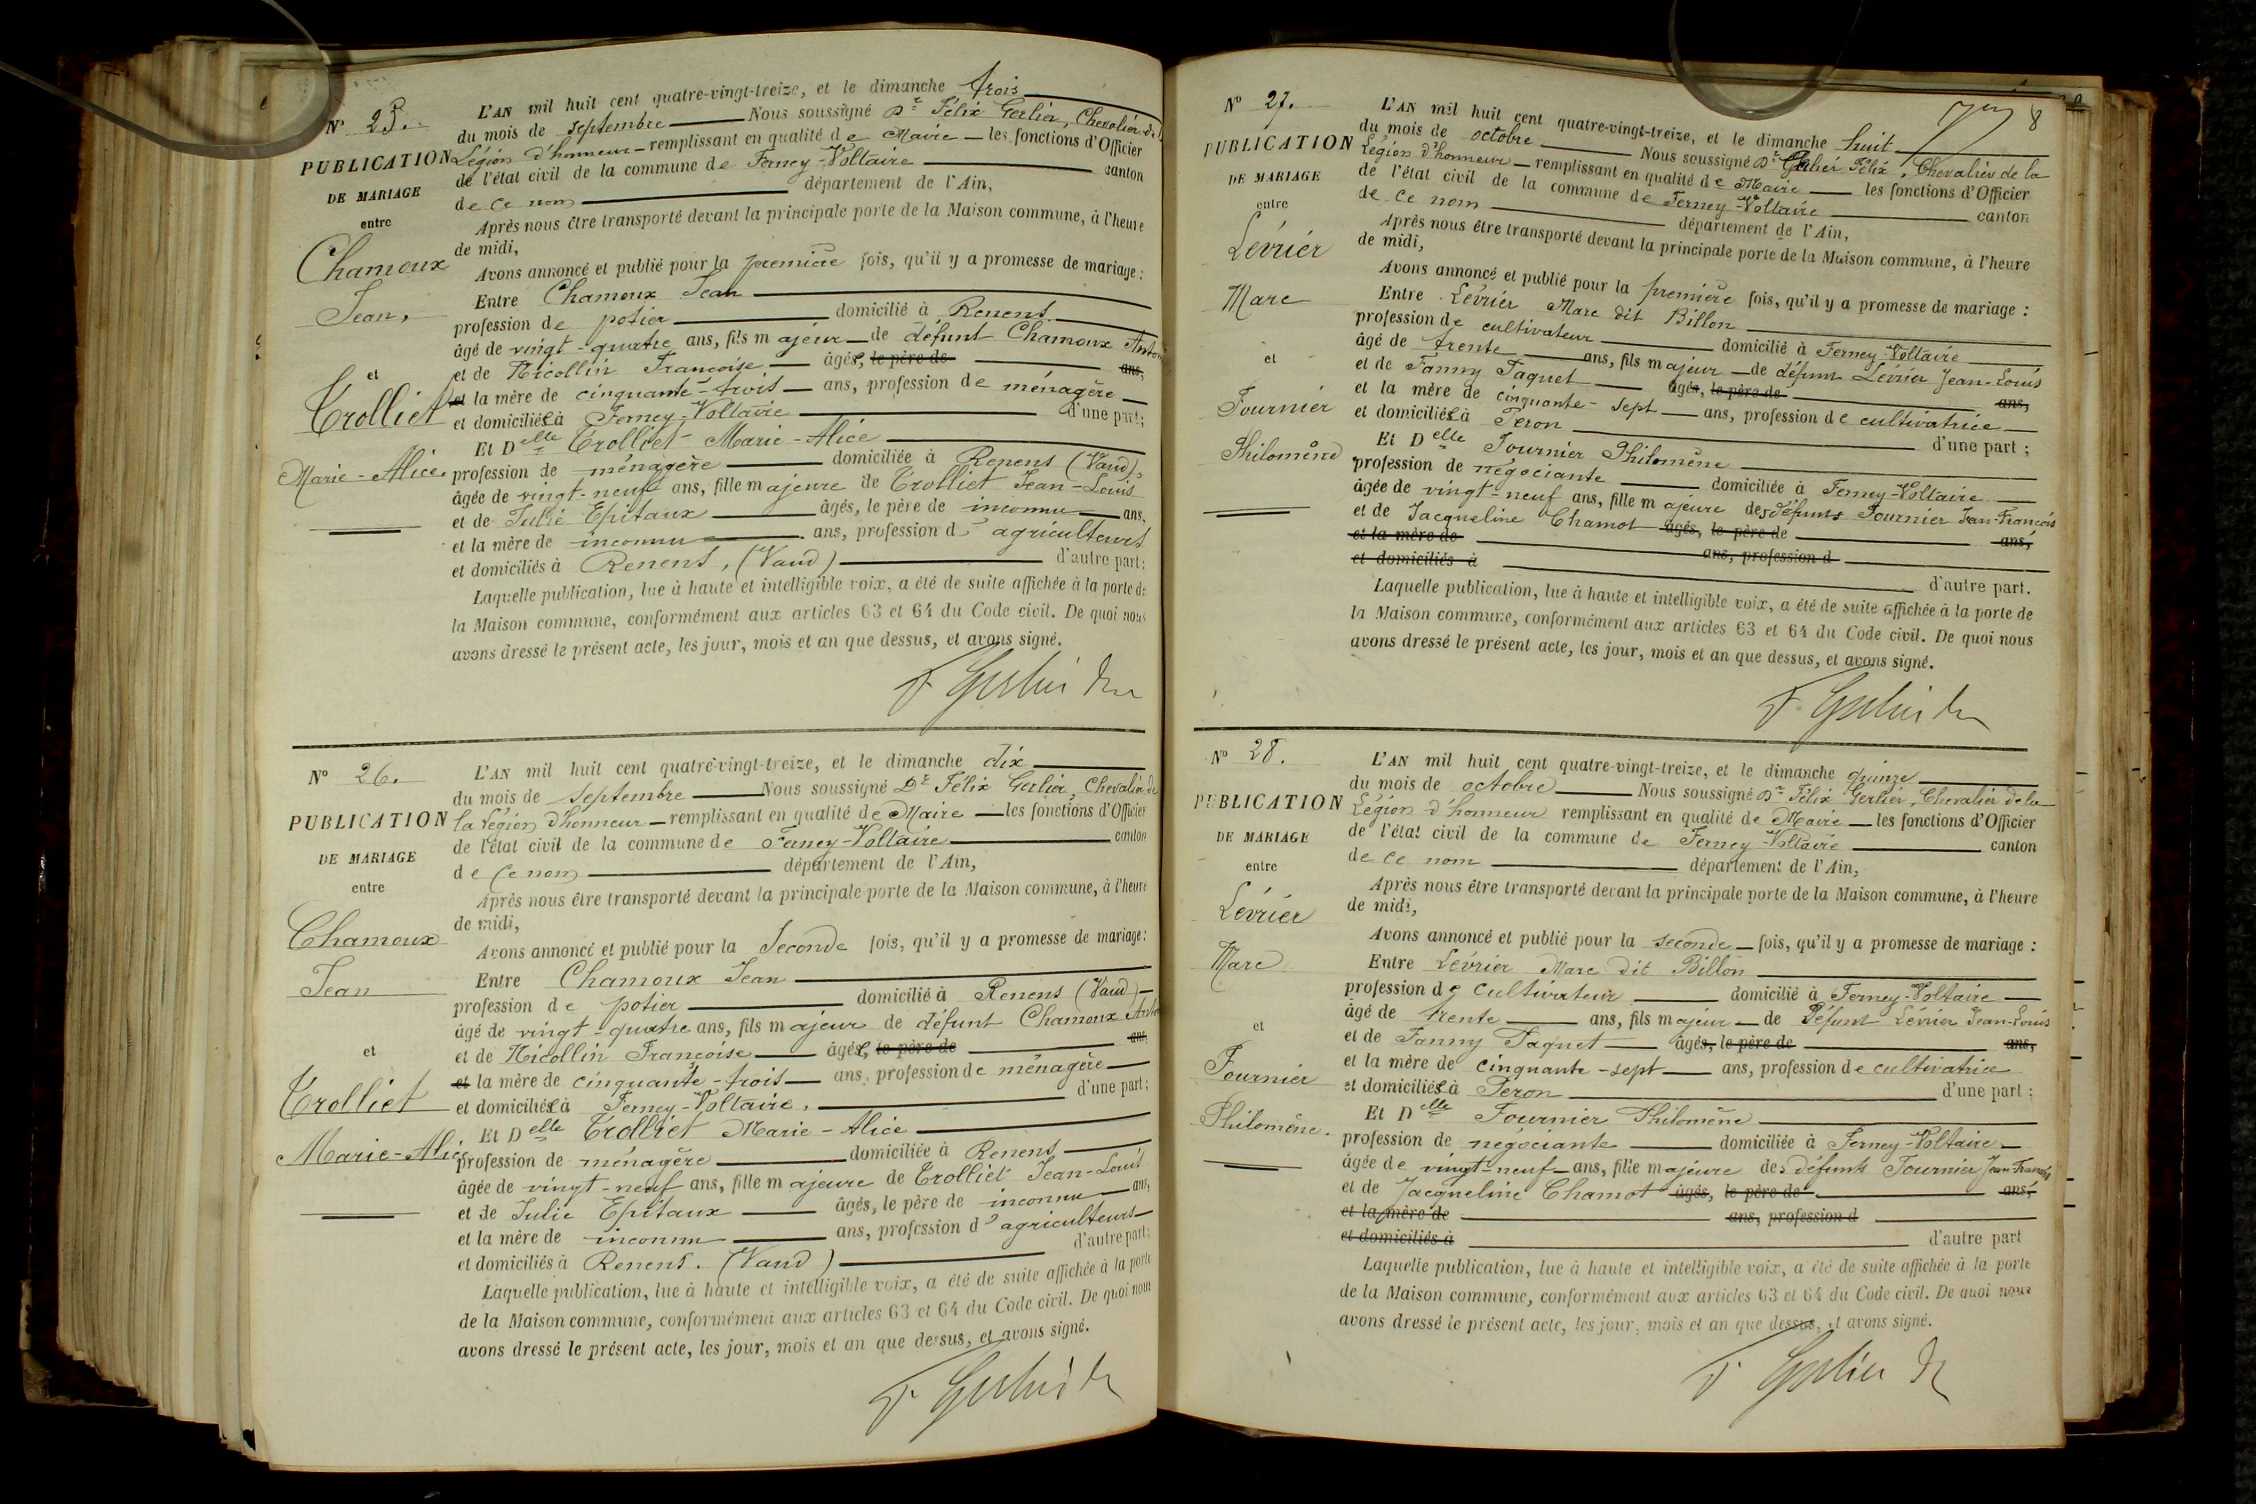 N° 25.
PUBLICATION
DE MARIAGE
entre
Chamoux
Jean,
et
Trolliet
Marie-Alice.
L'AN mil huit cent quatre-vingt-treize, et le dimanche trois
du mois de septembre Nous soussigné Dr Félix Gerlier, Chevalier de la
Légion d'honneur remplissant en qualité de Maire les fonctions d'Officier
de l'état civil de la commune de Ferney-Voltaire canton
de ce nom département de l'Ain,
Après nous être transporté devant la principale porte de la Maison commune, à l'heure
de midi,
Avons annoncé et publié pour la première fois, qu'il y a promesse de mariage :
Entre Chamoux Jean
profession de potier domicilié à Renens
âgé de vingt-quatre ans, fils majeur de défunt Chamoux
et de Nicollin Françoise âgée, le père de ans,
et la mère de cinquante-trois ans, profession de ménagère
et domiciliée à Ferney-Voltaire d'une part;
Et Delle Trolliet Marie-Alice
profession de ménagère domiciliée à Renens (Vaud),
âgée de vingt-neuf ans, fille majeure de Trolliet Jean-Louis
et de Julie Epitaux âgés, le père de inconnu ans,
et la mère de inconnu ans, profession d'agriculteurs
et domiciliés à Renens, (Vaud) d'autre part:
Laquelle publication, lue à haute et intelligible voix, a été de suite affichée à la porte de
la Maison commune, conformément aux articles 63 et 64 du Code civil. De quoi nous
avons dressé le présent acte, les jour, mois et an que dessus, et avons signé.
F. Gerlier
N° 26.
PUBLICATION
DE MARIAGE
entre
Chamoux
Jean
et
Trolliet
Marie-Alice
L'AN mil huit cent quatre-vingt-treize, et le dimanche dix
du mois de septembre Nous soussigné Dr Félix Gerlier, Chevalier de
la Légion d'honneur remplissant en qualité de Maire les fonctions d'Officier
de l'état civil de la commune de Ferney-Voltaire canton
de ce nom département de l'Ain,
Après nous être transporté devant la principale porte de la Maison commune, à l'heure
de midi,
Avons annoncé et publié pour la Seconde fois, qu'il y a promesse de mariage:
Entre Chamoux Jean
profession de potier domicilié à Renens (Vaud)
âgé de vingt-quatre ans, fils majeur de défunt Chamoux
et de Nicollin Françoise âgée, le père de ans,
et la mère de cinquante-trois ans, profession de ménagère
et domiciliée à Ferney-Voltaire. d'une part;
Et Delle Trolliet Marie-Alice
profession de ménagère domiciliée à Renens
âgée de vingt-neuf ans, fille majeure de Trolliet Jean-Louis
et de Julie Epitaux âgés, le père de inconnu ans,
et la mère de inconnu ans, profession d'agriculteurs
et domiciliés à Renens. (Vaud) d'autre part:
Laquelle publication, lue à haute et intelligible voix, a été de suite affichée à la porte
de la Maison commune, conformément aux articles 63 et 64 du Code civil. De quoi nous
avons dressé le présent acte, les jour, mois et an que dessus, et avons signé.
F. Gerlier
8
N° 27.
PUBLICATION
DE MARIAGE
entre
Lévrier
Marc
et
Fournier
Philomène
L'AN mil huit cent quatre-vingt-treize, et le dimanche huit
du mois de octobre Nous soussigné Dr Gerlier Félix, Chevalier de la
Légion d'honneur remplissant en qualité de Maire les fonctions d'Officier
de l'état civil de la commune de Ferney-Voltaire canton
de ce nom département de l'Ain,
Après nous être transporté devant la principale porte de la Maison commune, à l'heure
de midi,
Avons annoncé et publié pour la première fois, qu'il y a promesse de mariage :
Entre Lévrier Marc dit Billon
profession de cultivateur domicilié à Ferney-Voltaire
âgé de trente ans, fils majeur de défunt Lévrier Jean-Louis
et de Fanny Paquet âgés, le père de ans,
et la mère de cinquante-sept ans, profession de cultivatrice
et domiciliée à Peron d'une part ;
Et Delle Fournier Philomène
profession de négociante domiciliée à Ferney-Voltaire
âgée de vingt-neuf ans, fille majeure des défunts Fournier Jean-François
et de Jacqueline Chamot âgés, le père de ans,
et la mère de ans, profession d
et domiciliés à d'autre part.
Laquelle publication, lue à haute et intelligible voix, a été de suite affichée à la porte de
la Maison commune, conformément aux articles 63 et 64 du Code civil. De quoi nous
avons dressé le présent acte, les jour, mois et an que dessus, et avons signé.
F. Gerlier
N° 28.
PUBLICATION
DE MARIAGE
entre
Lévrier
Marc
et
Fournier
Philomène.
L'AN mil huit cent quatre-vingt-treize, et le dimanche quinze
du mois de octobre Nous soussigné Dr Félix Gerlier, Chevalier de la
Légion d'honneur remplissant en qualité de Maire les fonctions d'Officier
de l'état civil de la commune de Ferney-Voltaire canton
de ce nom département de l'Ain,
Après nous être transporté devant la principale porte de la Maison commune, à l'heure
de midi,
Avons annoncé et publié pour la seconde fois, qu'il y a promesse de mariage :
Entre Lévrier Marc dit Billon
profession de cultivateur domicilié à Ferney-Voltaire
âgé de trente ans, fils majeur de Défunt Lévrier Jean-Louis
et de Fanny Paquet âgés, le père de ans,
et la mère de cinquante-sept ans, profession de cultivatrice
et domiciliée à Peron d'une part ;
Et Delle Fournier Philomène
profession de négociante domiciliée à Ferney-Voltaire.
âgée de vingt-neuf ans, fille majeure des défunts Fournier Jean-François
et de Jacqueline Chamot âgés, le père de ans,
et la mère de ans, profession d
et domiciliés à d'autre part
Laquelle publication, lue à haute et intelligible voix, a été de suite affichée à la porte
de la Maison commune, conformément aux articles 63 et 64 du Code civil. De quoi nous
avons dressé le présent acte, les jour, mois et an que dessus, et avons signé.
F. Gerlier